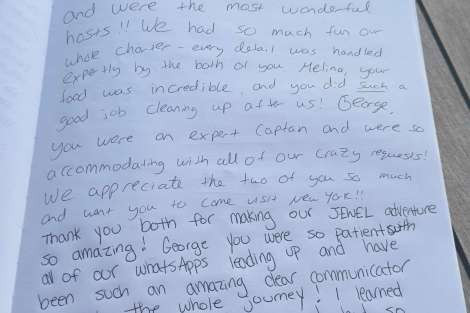 and were the most wonderful
hosts!! We had so much fun our
whole charter - every detail was handled
expertly by the both of you. Melina, your
food was incredible, and you did such a
good job cleaning up after us! George,
you were an expert captain and were so
accommodating with all of our crazy requests!
We appreciate the two of you so much
and want you to come visit New York!!
Thank you both for making our JEWEL adventure
so amazing! George you were so patient with
all of our WhatsApps leading up and have
been such an amazing clear communicator
the whole journey! I learned
so